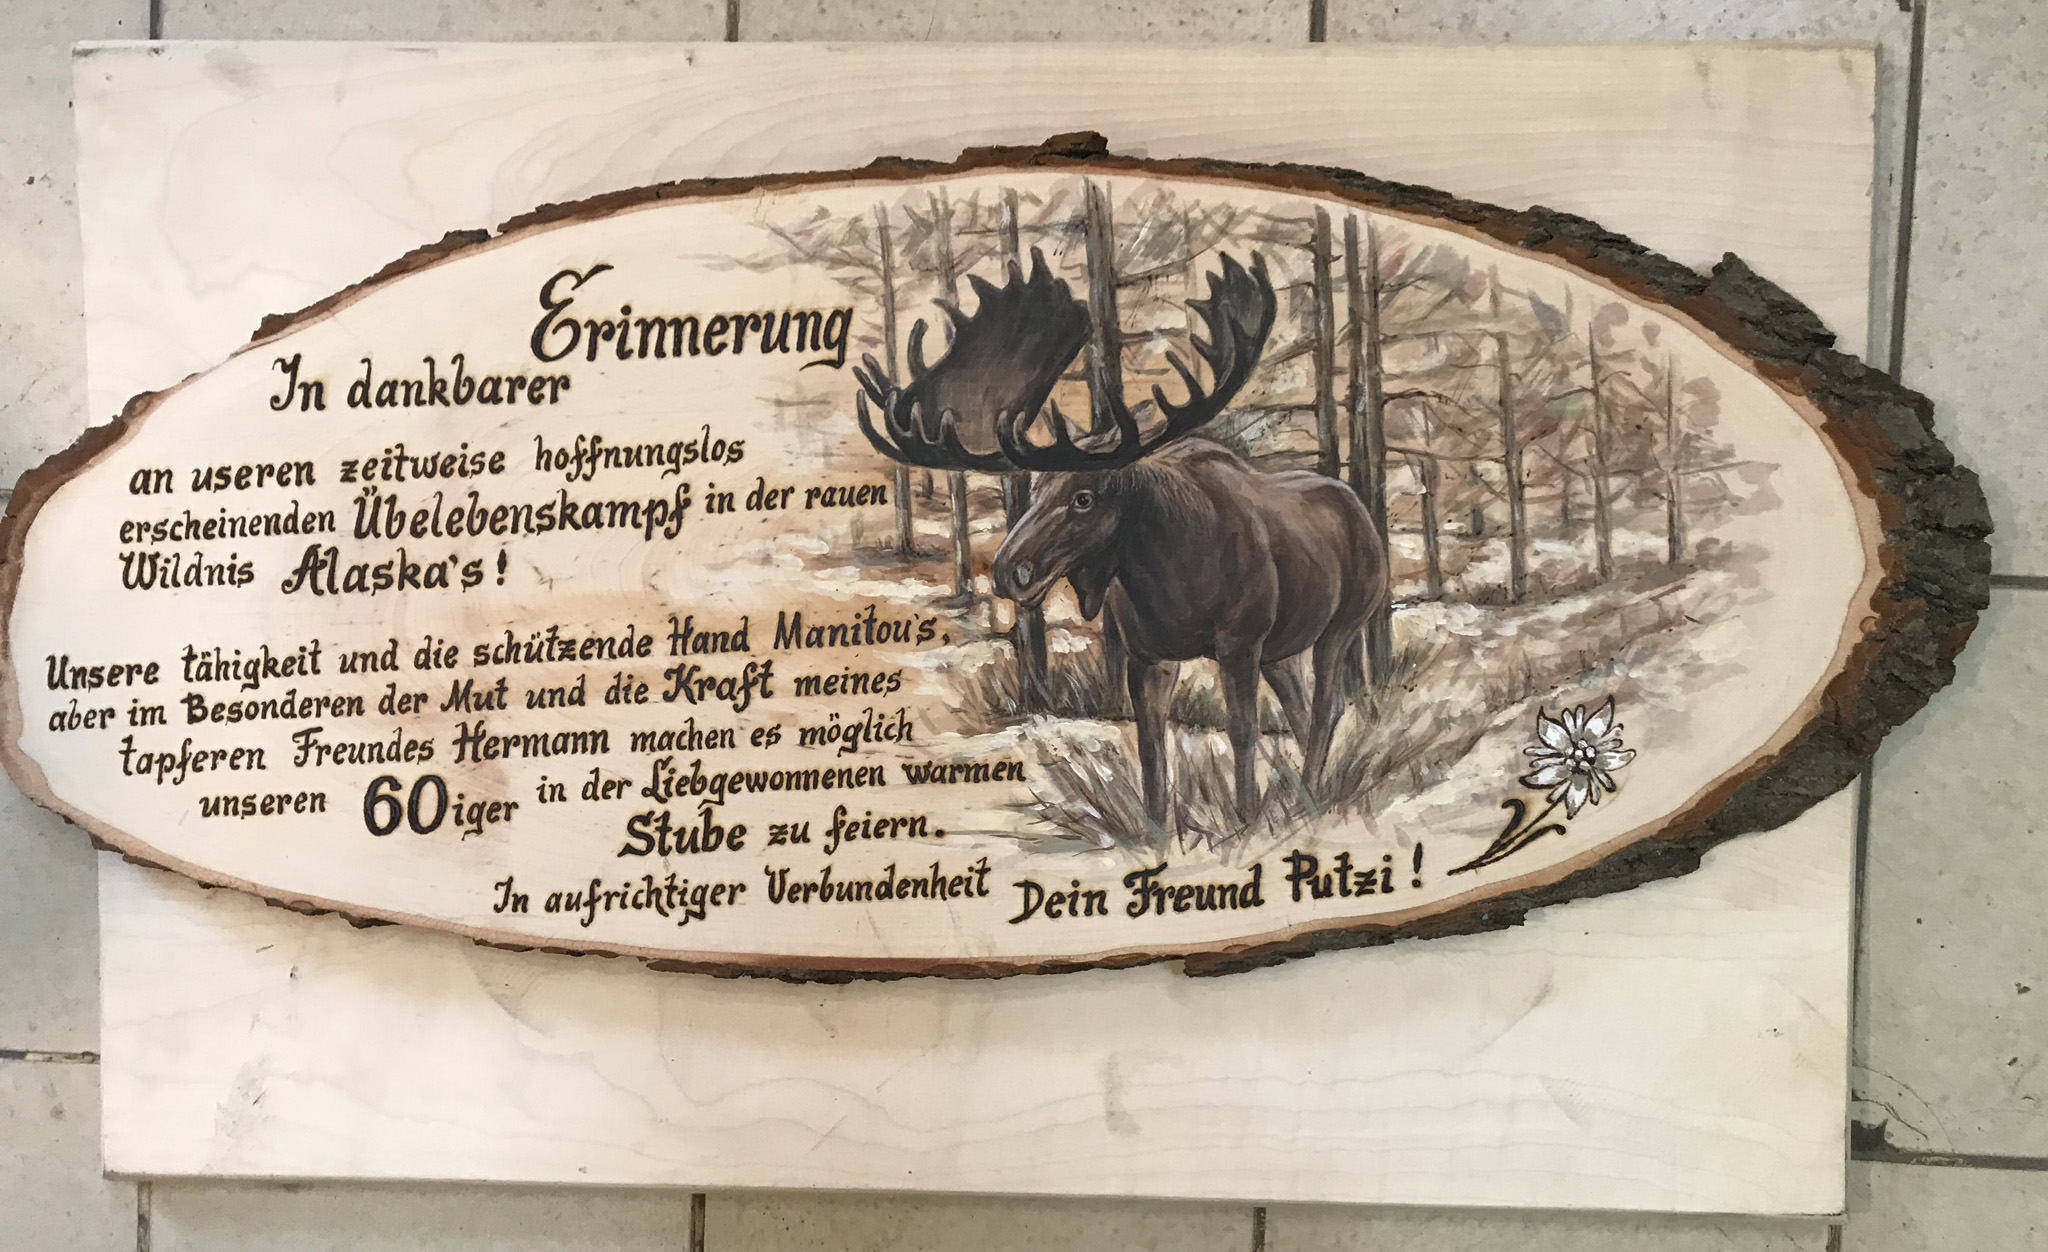 In dankbarer Erinnerung
an useren zeitweise hoffnungslos
erscheinenden Übelebenskampf in der rauen
Wildnis Alaska's!
Unsere tähigkeit und die schützende Hand Manitou's,
aber im Besonderen der Mut und die Kraft meines
tapferen Freundes Hermann machen es möglich
unseren 60iger in der Liebgewonnenen warmen
Stube zu feiern.
In aufrichtiger Verbundenheit Dein Freund Putzi!